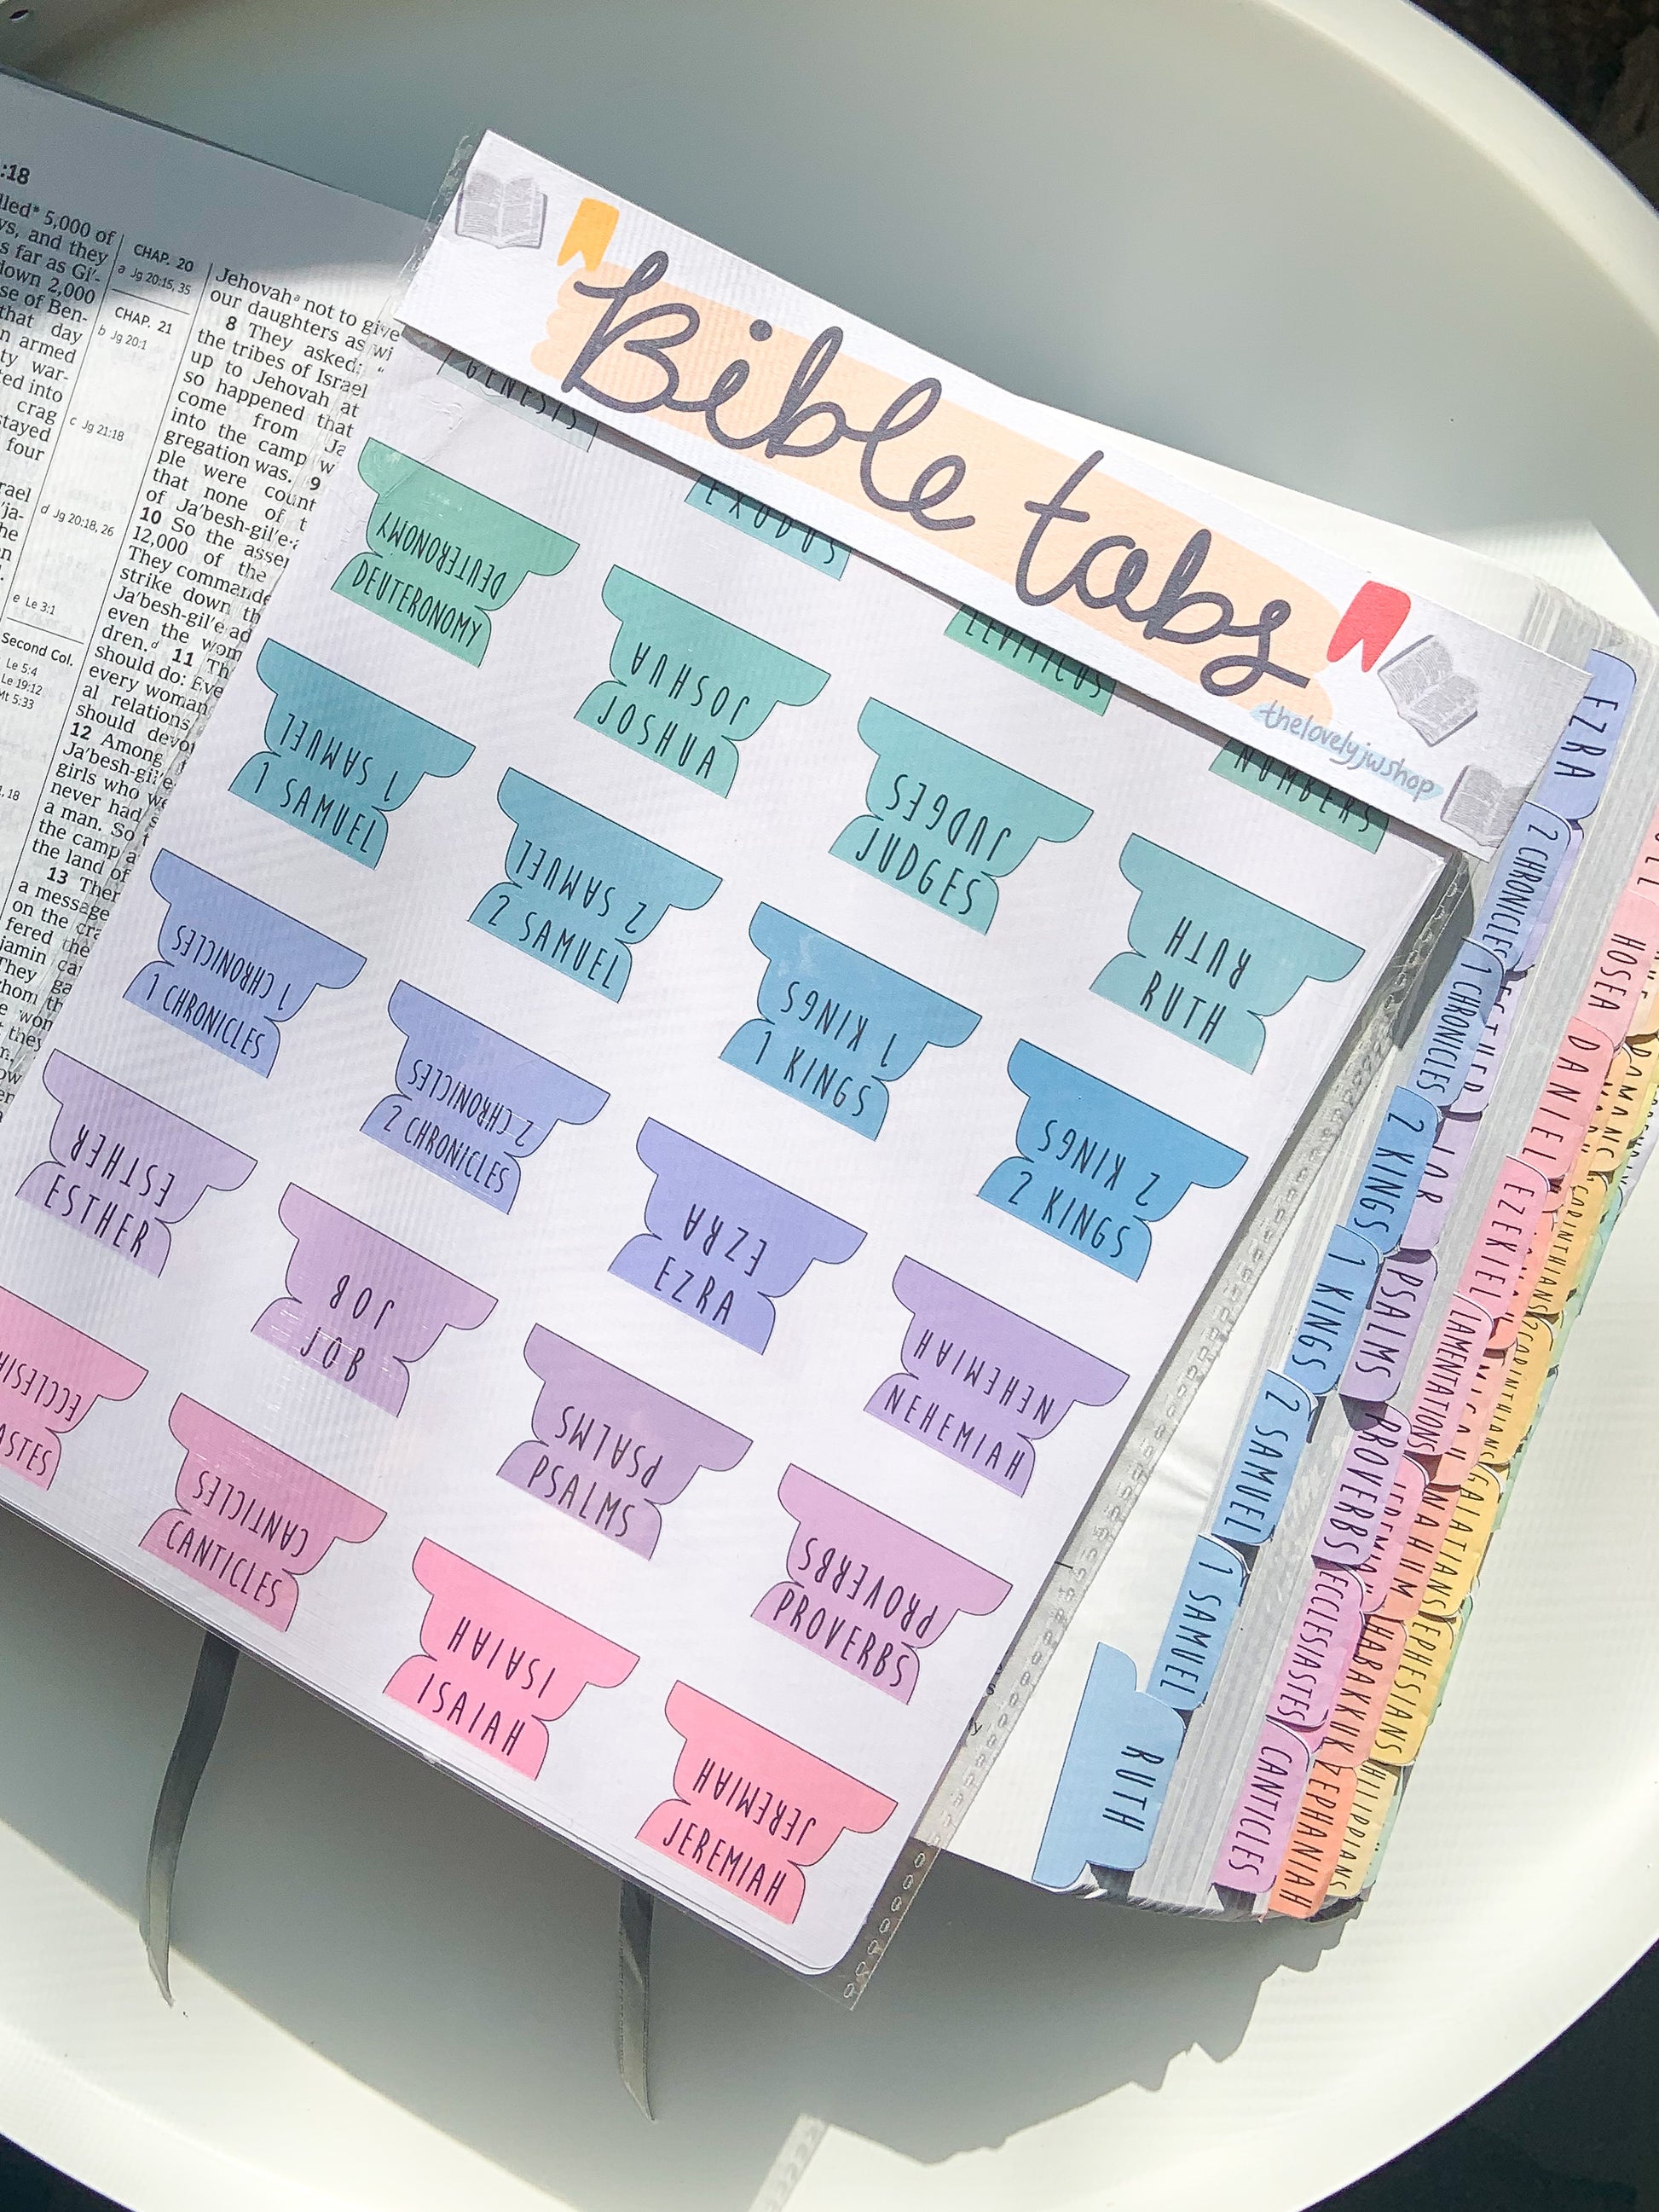 :18
lled* 5,000 of
ys, and they
s far as Gi′-
down 2,000
se of Ben-
that day
n armed
ty war-
ted into
crag
stayed
four
CHAP. 20
a Jg 20:15, 35
CHAP. 21
b Jg 20:1
c Jg 21:18
d Jg 20:18, 26
e Le 3:1
Second Col.
Le 5:4
Le 19:12
Mt 5:33
Jehovahᵃ not to give
our daughters as wi
8 They asked: “
the tribes of Israel
up to Jehovah at
so happened that
come from Ja
into the camp w
gregation was. 9
ple were count
that none of t
of Ja′besh-gil′e·
10 So the assem
12,000 of the
They commande
strike down th
Ja′besh-gil′e·ad
even the wom
dren.ᵈ 11 Th
should do: Eve
every woman
al relations
should devot
12 Among
Ja′besh-gil′e
girls who we
never had s
a man. So t
the camp a
the land of
13 Then
a message
on the cra
fered the
Bible tabs
thelovelyjwshop
GENESIS
EXODUS
LEVITICUS
NUMBERS
DEUTERONOMY
DEUTERONOMY
JOSHUA
JOSHUA
JUDGES
JUDGES
RUTH
RUTH
1 SAMUEL
1 SAMUEL
2 SAMUEL
2 SAMUEL
1 KINGS
1 KINGS
2 KINGS
2 KINGS
1 CHRONICLES
1 CHRONICLES
2 CHRONICLES
2 CHRONICLES
EZRA
EZRA
NEHEMIAH
NEHEMIAH
ESTHER
ESTHER
JOB
JOB
PSALMS
PSALMS
PROVERBS
PROVERBS
ECCLESI
ASTES
CANTICLES
CANTICLES
ISAIAH
ISAIAH
JEREMIAH
JEREMIAH
EZRA
2 CHRONICLES
1 CHRONICLES
2 KINGS
1 KINGS
2 SAMUEL
1 SAMUEL
RUTH
JOB
PSALMS
PROVERBS
ECCLESIASTES
CANTICLES
HOSEA
DANIEL
EZEKIEL
LAMENTATIONS
NAHUM
HABAKKUK
ZEPHANIAH
ROMANS
GALATIANS
EPHESIANS
PHILIPPIANS